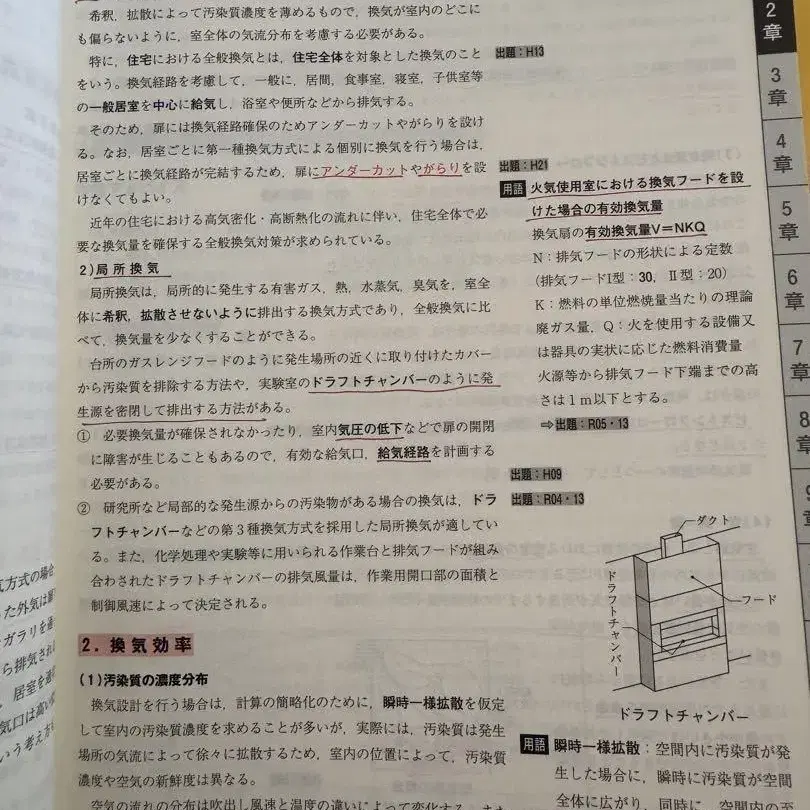 希釈，拡散によって汚染質濃度を薄めるもので，換気が室内のどこに
も偏らないように，室全体の気流分布を考慮する必要がある。
特に，住宅における全般換気とは，住宅全体を対象とした換気のこと
をいう。換気経路を考慮して，一般に，居間，食事室，寝室，子供室等
の一般居室を中心に給気し，浴室や便所などから排気する。
そのため，扉には換気経路確保のためアンダーカットやがらりを設け
る。なお，居室ごとに第一種換気方式による個別に換気を行う場合は，
居室ごとに換気経路が完結するため，扉にアンダーカットやがらりを設
けなくてもよい。
近年の住宅における高気密化・高断熱化の流れに伴い，住宅全体で必
要な換気量を確保する全般換気対策が求められている。
2)局所換気
局所換気は，局所的に発生する有害ガス，熱，水蒸気，臭気を，室全
体に希釈，拡散させないように排出する換気方式であり，全般換気に比
べて，換気量を少なくすることができる。
台所のガスレンジフードのように発生場所の近くに取り付けたカバー
から汚染質を排除する方法や，実験室のドラフトチャンバーのように発
生源を密閉して排出する方法がある。
① 必要換気量が確保されなかったり，室内気圧の低下などで扉の開閉
に障害が生じることもあるので，有効な給気口，給気経路を計画する
必要がある。
② 研究所など局部的な発生源からの汚染物がある場合の換気は，ドラ
フトチャンバーなどの第3種換気方式を採用した局所換気が適してい
る。また，化学処理や実験等に用いられる作業台と排気フードが組み
合わされたドラフトチャンバーの排気風量は，作業用開口部の面積と
制御風速によって決定される。
2. 換気効率
(1)汚染質の濃度分布
換気設計を行う場合は，計算の簡略化のために，瞬時一様拡散を仮定
して室内の汚染質濃度を求めることが多いが，実際には，汚染質は発生
場所の気流によって徐々に拡散するため，室内の位置によって，汚染質
濃度や空気の新鮮度は異なる。
空気の流れの分布は吹出し風速と温度の違いによって変化する。また
出題：H13
出題：H21
用語 火気使用室における換気フードを設
けた場合の有効換気量
換気扇の有効換気量V＝NKQ
N：排気フードの形状による定数
(排気フードI型：30，Ⅱ型：20)
K：燃料の単位燃焼量当たりの理論
廃ガス量，Q：火を使用する設備又
は器具の実状に応じた燃料消費量
火源等から排気フード下端までの高
さは1m以下とする。
⇒出題：R05・13
出題：H09
出題：R04・13
ダクト
フード
ドラフトチャンバー
ドラフトチャンバー
用語 瞬時一様拡散：空間内に汚染質が発
生した場合に，瞬時に汚染質が空間
全体に広がり，同時に，空間内の
2
章
3
章
4
章
5
章
6
章
7
章
8
章
気方式の場合
た外気は
ガラリを
ら排気され
居室を
気口は高い
いう考え方